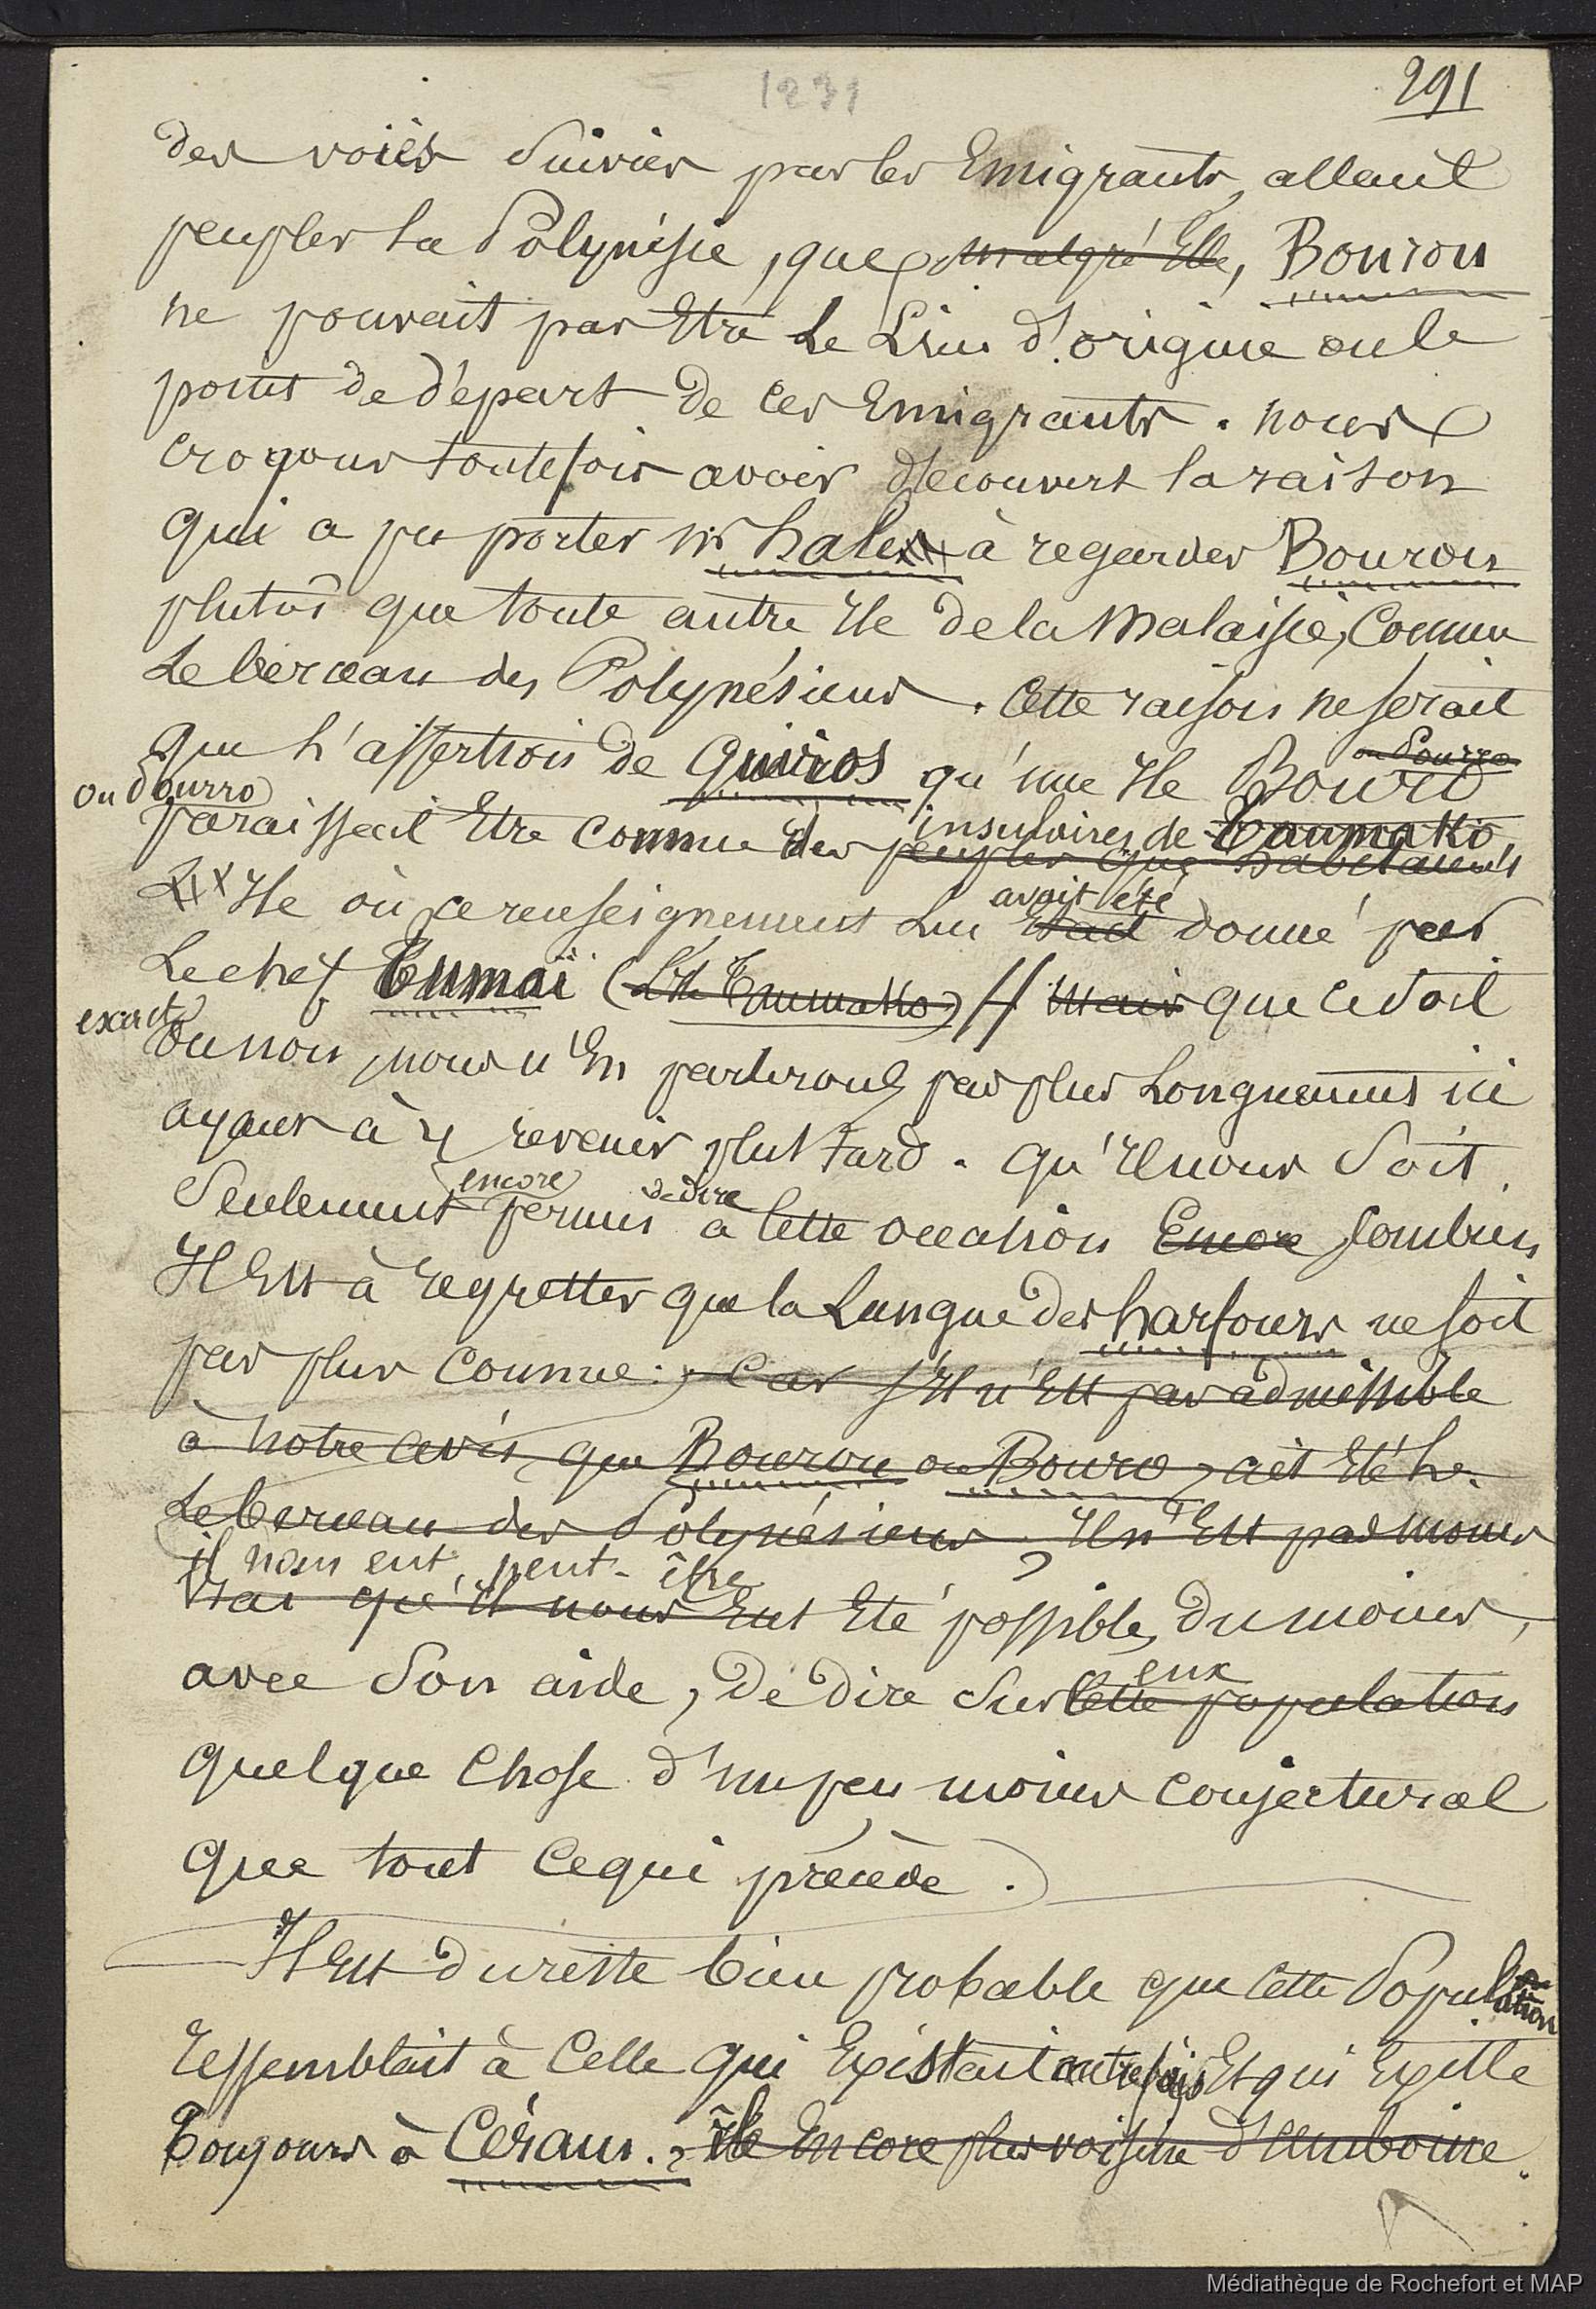 1231
291
des voies suivies par les Emigrants, allant
peupler la Polynésie, que, malgré Elle, Bourou
ne pouvait pas Etre Le Lieu d'origine ou le
point de départ de ces Emigrants. nous
croyons toutefois avoir découvert la raison
qui a pu porter Mr hale à regarder Bourou
plutôt que toute autre Ile de la Malaisie, Comme
Le berceau des Polynésiens. Cette raison ne serait
que l'assertion de Quiros qu'une Ile Bouro
ou Pourro
ou Pourro
paraissait Etre connue des peuples que habitaient
insulaires de Taumako,
L Ile où ce renseignement Lui Etait donné par
avait été
Le chef Tumaï (L'Ile Taumako) // Mais que ce soit
exact
ou non, nous n'En parlerons pas plus Longuement ici
ayant à y revenir plus tard. qu'il nous soit
Seulement permis à cette occasion Encore, combien
encore
de dire
Il Est à regretter que la Langue des harfours ne soit
pas plus connue: Car s'Il n'Est pas admissible
à notre avis, que Bourou ou Bouro, ait Eté le
Le berceau des Polynésiens, Il n'Est pas moins
il nous eut, peut-être
vrai qu'il nous Eut Eté possible, du moins,
avec son aide, de dire sur cette population
eux
quelque chose d'un peu moins conjectural
que tout ce qui précède.
Il Est du reste bien probable que cette Population
ressemblait à Celle qui Existait autrefois Et qui Existe
Toujours à Céram., île Encore plus voisine d'Amboine.
Médiathèque de Rochefort et MAP